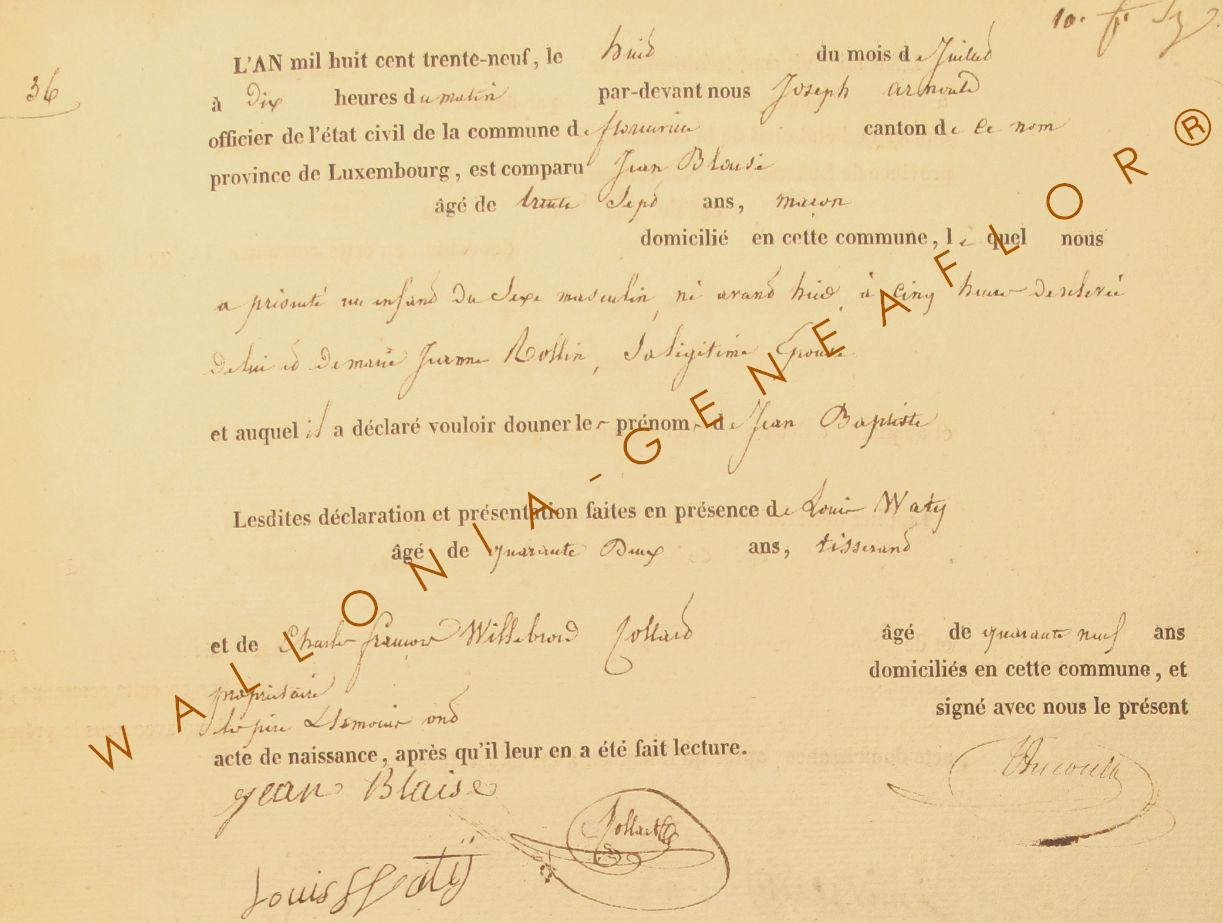 36
L'AN mil huit cent trente-neuf, le huit du mois de Juillet
à Dix heures du matin par-devant nous Joseph arnould
officier de l'état civil de la commune de florenville canton de Ce nom
province de Luxembourg, est comparu Jean Blaise
âgé de trente Sept ans, maçon
domicilié en cette commune, lequel nous
a présenté un enfant du Sexe masculin, né avant hier, à Cinq heures de relevée
de lui et de marie Jeanne Rollin, Sa légitime Epouse
et auquel il a déclaré vouloir douner les prénoms de Jean Baptiste
Lesdites déclaration et présentation faites en présence de Louis Waty
âgé de quarante Deux ans, tisserand
et de Charles françois Willebrord Collard âgé de quarante neuf ans
propriétaire domiciliés en cette commune, et
le père & les témoins ont signé avec nous le présent
acte de naissance, après qu'il leur en a été fait lecture.
jean Blaise
Collard
Louis Waty
WALLONIA-GENEAFLOR®